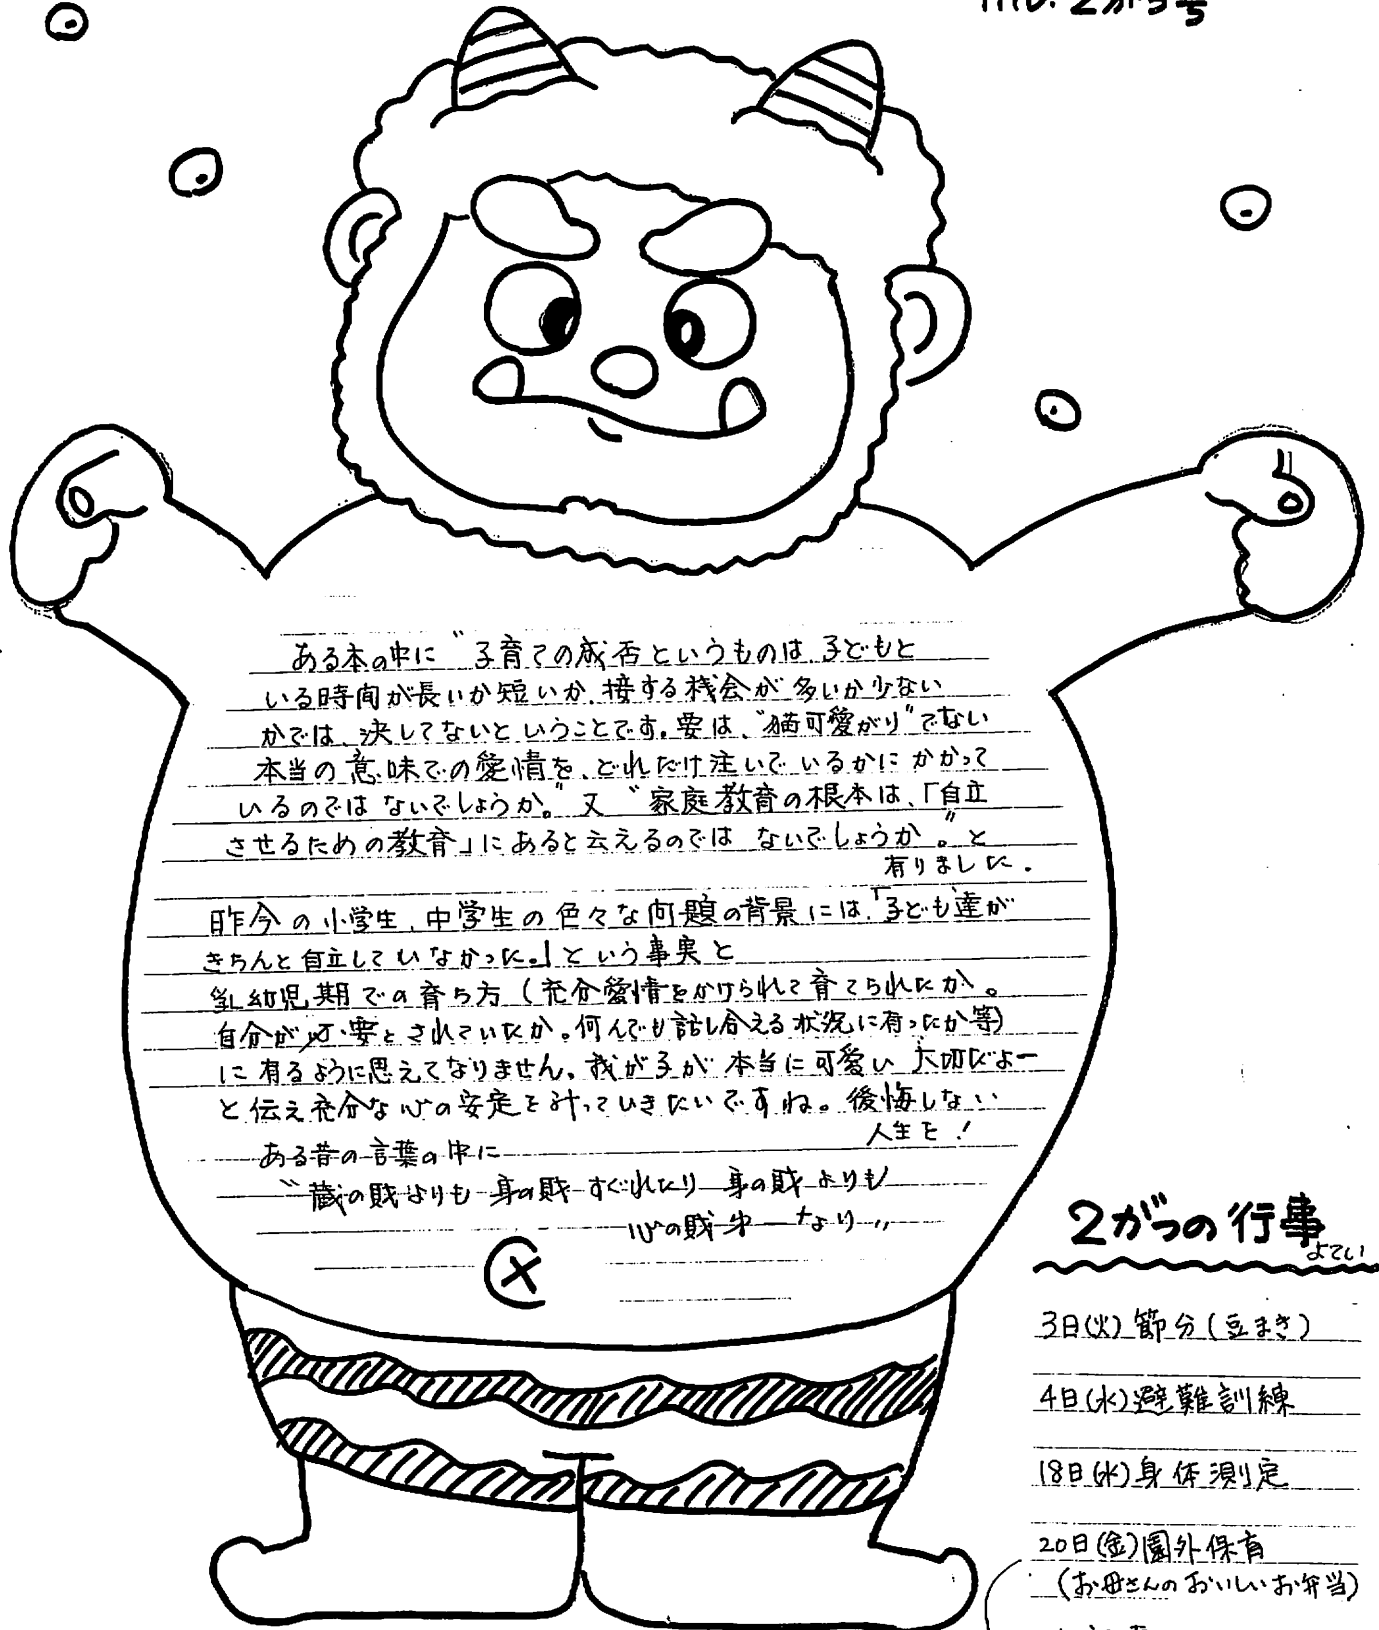 2がつ号
ある本の中に〝子育ての成否というものは、子どもと
いる時間が長いか短いか、接する機会が多いか少ない
かでは、決してないということです。要は、〝猫可愛がり〟でない
本当の意味での愛情を、どれだけ注いでいるかにかかって
いるのではないでしょうか。〟又〝家庭教育の根本は、「自立
させるための教育」にあると云えるのではないでしょうか。〟と
有りました。
昨今の小学生、中学生の色々な問題の背景には、「子ども達が
きちんと自立していなかった。」という事実と
乳幼児期での育ち方(充分愛情をかけられて育てられたか。
自分が必要とされていたか。何んでも話し合える状況に有ったか等)
に有るように思えてなりません。我が子が本当に可愛い大切だよー
と伝え充分な心の安定を計っていきたいですね。後悔しない
人生を!
ある昔の言葉の中に
〝蔵の財よりも身の財すぐれたり身の財よりも
心の財第一なり〟
2がつの行事
よてい
3日(火)節分(豆まき)
4日(水)避難訓練
18日(水)身体測定
20日(金)園外保育
(お母さんのおいしいお弁当)